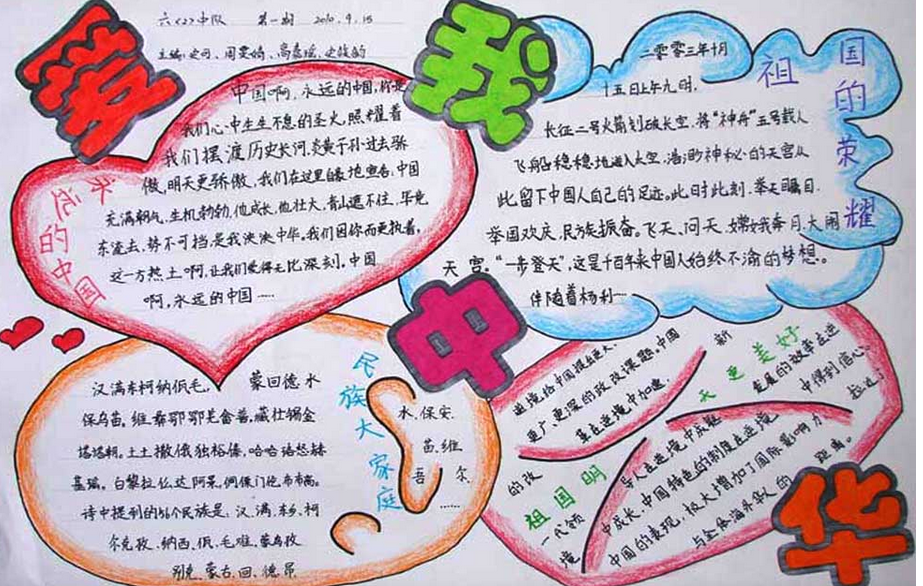 六〈2〉中队 第一期 2010.9.15
爱
我
中
华
永远的中国
中国啊,永远的中国,你是
我们心中生生不息的圣火,照耀着
我们摆渡历史长河,炎黄子孙过去骄
傲,明天更骄傲,我们在这里自豪地宣告:中国
充满朝气,生机勃勃,他成长,他壮大,青山遮不住,毕竟
东流去,势不可挡是我泱泱中华,我们因你而更执着,
这一方热土啊,让我们爱得无比深刻,中国
啊,永远的中国……
祖国的荣耀
二零零三年十月
十五日上午九时,
长征二号火箭划破长空,将“神舟”五号载人
飞船稳稳地送入太空,浩渺神秘的天宫从
此留下中国人自己的足迹。此时此刻,举天瞩目,
举国欢庆,民族振奋。飞天、问天、嫦娥奔月、大闹
天宫。“一步登天”,这是千百年来中国人始终不渝的梦想。
伴随着杨利…
民族大家庭
汉满东柯纳佤毛, 蒙回德水
保乌苗,维
塔塔朝。土土撒俄独裕傣,哈哈珞怒赫
基瑶。白黎拉仫达阿景,仡佬门仡布布高。
诗中提到的56个民族是:汉、满、东乡、柯
尔克孜、纳西、佤、毛难、蒙乌孜
别克、蒙古、回、德昂、
水、保安、
苗、维
吾 尔、
……
祖国明天更美好
新
一代领
的改
革在逆境中加速,
更广、更深的改改课题。中国
发展的故事在逆
中得到信心
中成长,中国特色的制度在逆境
中国的表现,极大增加了国际影响力
与全体海外华人的